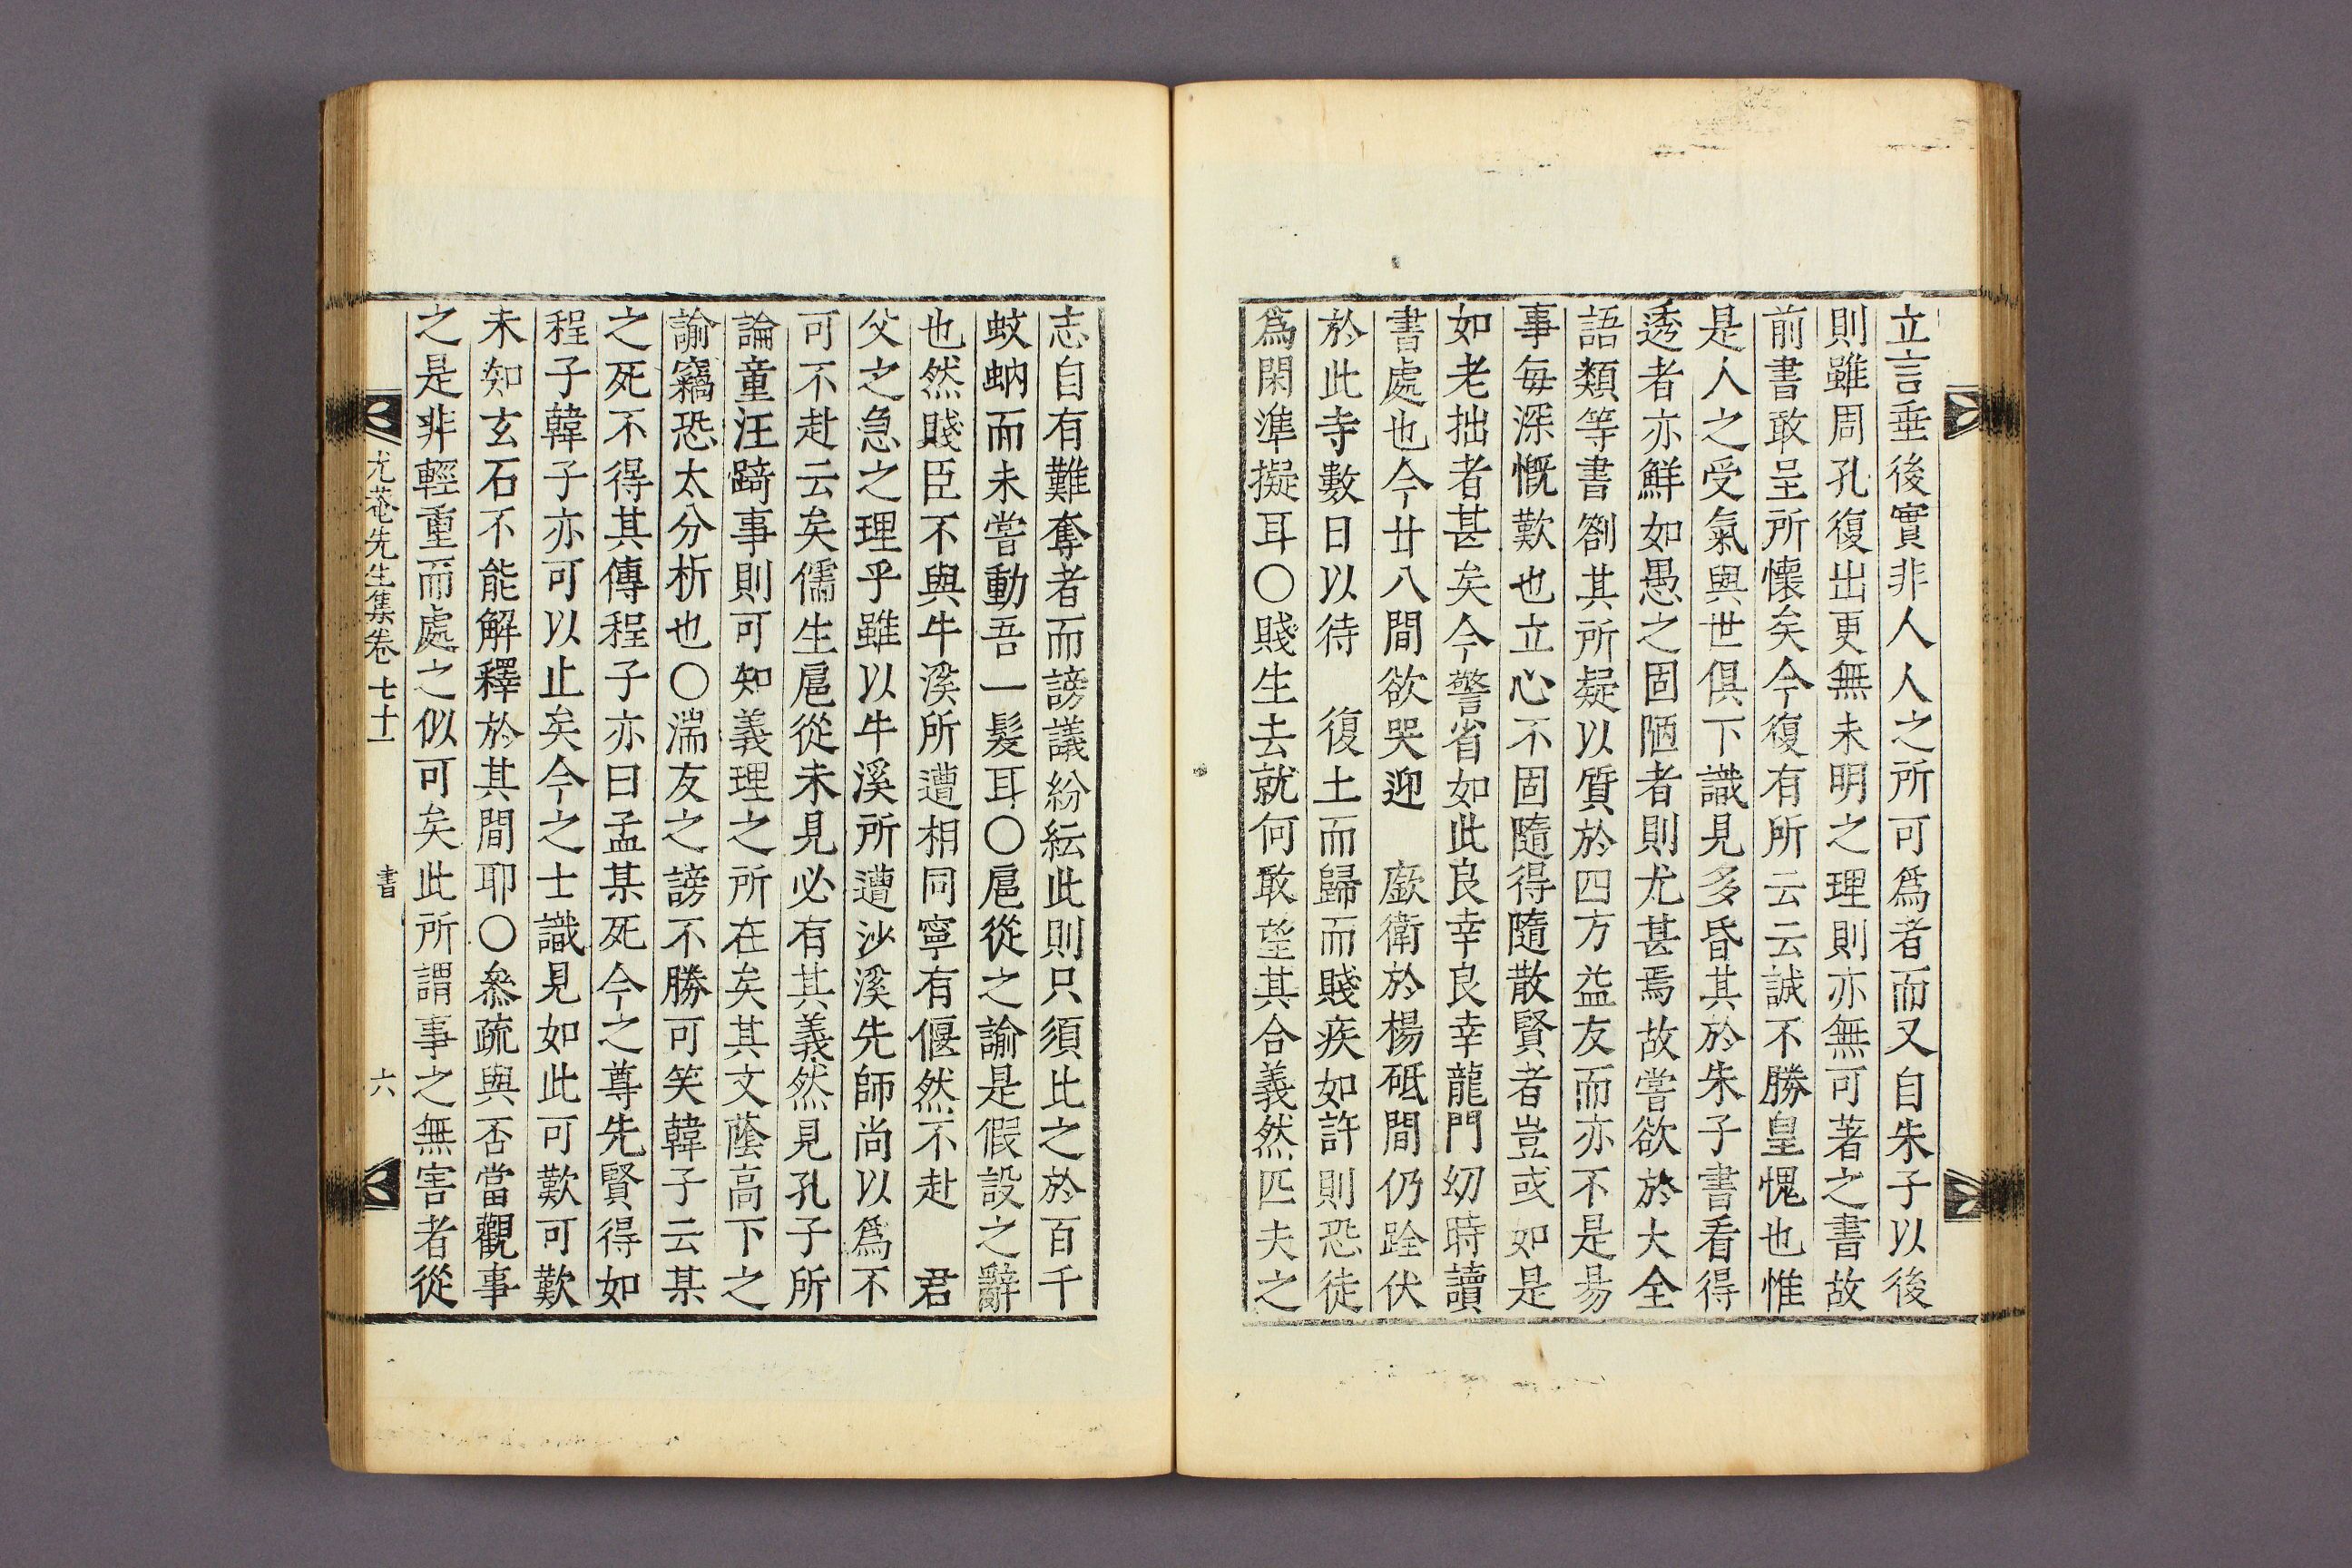 立言垂後實非人人之所可爲者而又自朱子以後
則雖周孔復出更無未明之理則亦無可著之書故
前書敢呈所懷矣今復有所云云誠不勝皇愧也惟
是人之受氣與世俱下識見多昏其於朱子書看得
透者亦鮮如愚之固陋者則尤甚焉故嘗欲於大全
語類等書劄其所疑以質於四方益友而亦不是昜
事每深慨歎也立心不固隨得隨散賢者豈或如是
如老拙者甚矣今警省如此良幸良幸龍門㓜時讀
書處也今廿八間欲哭迎 㢡衛於楊砥間仍跧伏
於此寺數日以待 復土而歸而賤疾如許則恐徒
爲閑準擬耳○賤生去就何敢望其合義然匹夫之
志自有難奪者而謗議紛紜此則只須比之於百千
蚊蚋而未嘗動吾一髮耳○扈從之諭是假設之辭
也然賤臣不與牛溪所遭相同寧有偃然不赴 君
父之急之理乎雖以牛溪所遭沙溪先師尚以爲不
可不赴云矣儒生扈從未見必有其義然見孔子所
論童汪踦事則可知義理之所在矣其文蔭高下之
諭竊恐太分析也○湍友之謗不勝可笑韓子云某
之死不得其傳程子亦曰孟某死今之尊先賢得如
程子韓子亦可以止矣今之士識見如此可歎可歎
未知玄石不能解釋於其間耶○叅疏與否當觀事
之是非輕重而處之似可矣此所謂事之無害者從
尤菴先生集卷七十一 書 六